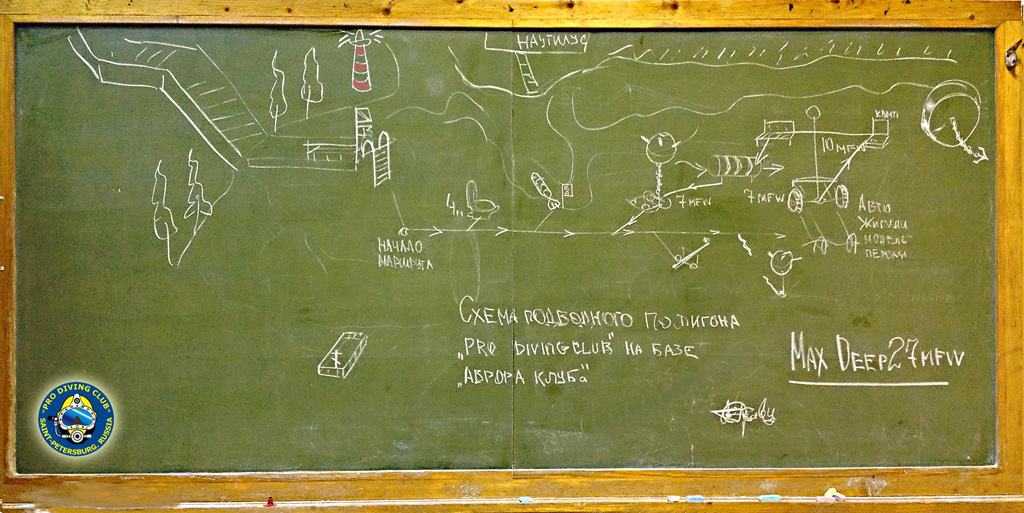 НАУТИЛУС
10 MFW
4м
7 MFW
7 MFW
АВТО
ЖИГУЛИ
МОДЕЛЬ
ПЕРВАЯ
НАЧАЛО
МАРШРУТА
СХЕМА ПОДВОДНОГО ПОЛИГОНА
„PRO DIVING CLUB" НА БАЗЕ
„АВРОРА КЛУБА"
MAX DEEP 27 MFW
"PRO DIVING CLUB"
SAINT-PETERSBURG, RUSSIA